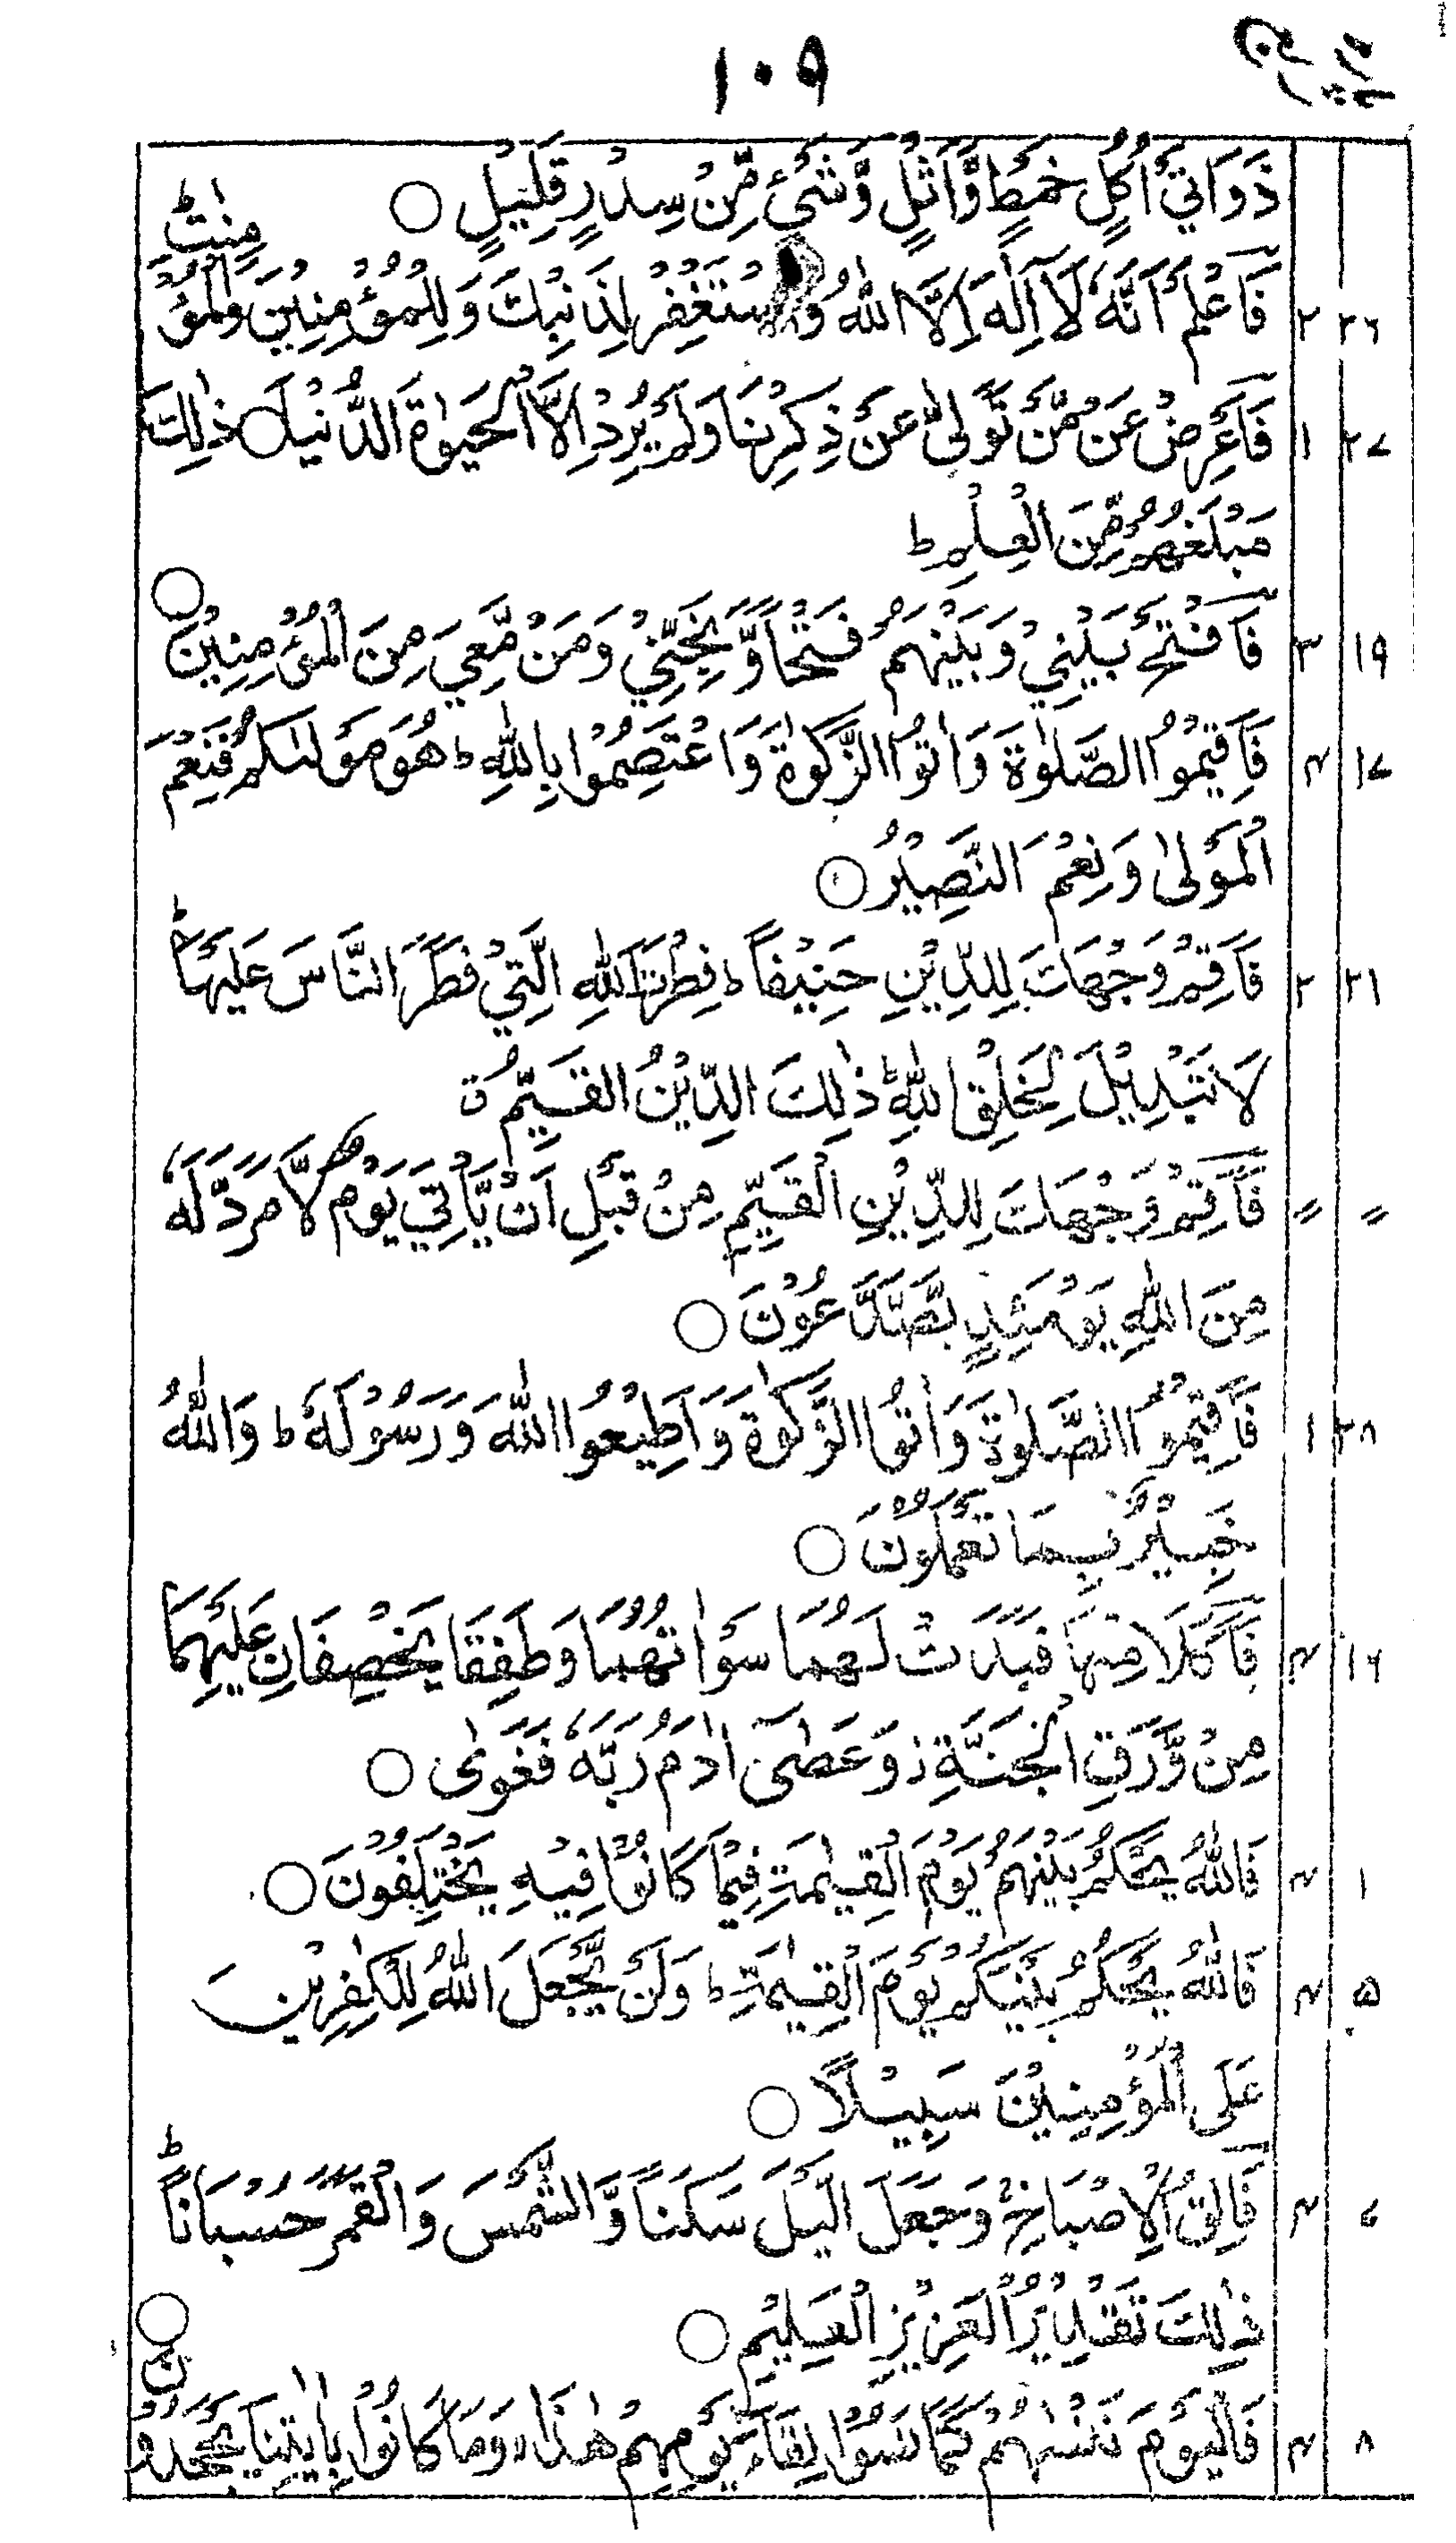 ١٠٩
ذَوَاتَيْ اُكُلٍ خَمْطٍ وَّاَثْلٍ وَّشَيْءٍ مِّنْ سِدْرٍ قَلِيْلٍ ○
٢٦ ٢ فَاعْلَمْ اَنَّهٗ لَآ اِلٰهَ اِلَّا اللّٰهُ وَاسْتَغْفِرْ لِذَنْبِكَ وَلِلْمُؤْمِنِيْنَ وَالْمُؤْمِنٰتِ ط
٢٧ ١ فَاَعْرِضْ عَنْ مَّنْ تَوَلّٰى عَنْ ذِكْرِنَا وَلَمْ يُرِدْ اِلَّا الْحَيٰوةَ الدُّنْيَا ○ ذٰلِكَ
مَبْلَغُهُمْ مِّنَ الْعِلْمِ ط
١٩ ٣ فَافْتَحْ بَيْنِيْ وَبَيْنَهُمْ فَتْحًا وَّنَجِّنِيْ وَمَنْ مَّعِيَ مِنَ الْمُؤْمِنِيْنَ ○
١٧ ٤ فَاَقِيْمُوا الصَّلٰوةَ وَاٰتُوا الزَّكٰوةَ وَاعْتَصِمُوْا بِاللّٰهِ ط هُوَ مَوْلٰىكُمْ فَنِعْمَ
الْمَوْلٰى وَنِعْمَ النَّصِيْرُ ○
٢١ ٢ فَاَقِمْ وَجْهَكَ لِلدِّيْنِ حَنِيْفًا ط فِطْرَتَ اللّٰهِ الَّتِيْ فَطَرَ النَّاسَ عَلَيْهَا ط
لَا تَبْدِيْلَ لِخَلْقِ اللّٰهِ ط ذٰلِكَ الدِّيْنُ الْقَيِّمُ ق
〃 〃 فَاَقِمْ وَجْهَكَ لِلدِّيْنِ الْقَيِّمِ مِنْ قَبْلِ اَنْ يَّاْتِيَ يَوْمٌ لَّا مَرَدَّ لَهٗ
مِنَ اللّٰهِ يَوْمَئِذٍ يَّصَّدَّعُوْنَ ○
٢٨ ١ فَاَقِيْمُوا الصَّلٰوةَ وَاٰتُوا الزَّكٰوةَ وَاَطِيْعُوا اللّٰهَ وَرَسُوْلَهٗ ط وَاللّٰهُ
خَبِيْرٌۢ بِمَا تَعْمَلُوْنَ ○
١٦ ٤ فَاَكَلَا مِنْهَا فَبَدَتْ لَهُمَا سَوْاٰتُهُمَا وَطَفِقَا يَخْصِفَانِ عَلَيْهِمَا
مِنْ وَّرَقِ الْجَنَّةِ ز وَعَصٰٓى اٰدَمُ رَبَّهٗ فَغَوٰى ○
١ ٤ فَاللّٰهُ يَحْكُمُ بَيْنَهُمْ يَوْمَ الْقِيٰمَةِ فِيْمَا كَانُوْا فِيْهِ يَخْتَلِفُوْنَ ○
٥ ٤ فَاللّٰهُ يَحْكُمُ بَيْنَكُمْ يَوْمَ الْقِيٰمَةِ ط وَلَنْ يَّجْعَلَ اللّٰهُ لِلْكٰفِرِيْنَ
عَلَى الْمُؤْمِنِيْنَ سَبِيْلًا ○
٧ ٤ فَالِقُ الْاِصْبَاحِ ج وَجَعَلَ الَّيْلَ سَكَنًا وَّالشَّمْسَ وَالْقَمَرَ حُسْبَانًا ط
ذٰلِكَ تَقْدِيْرُ الْعَزِيْزِ الْعَلِيْمِ ○
٨ ٤ فَالْيَوْمَ نَنْسٰىهُمْ كَمَا نَسُوْا لِقَآءَ يَوْمِهِمْ هٰذَا لا وَمَا كَانُوْا بِاٰيٰتِنَا يَجْحَدُوْنَ ○